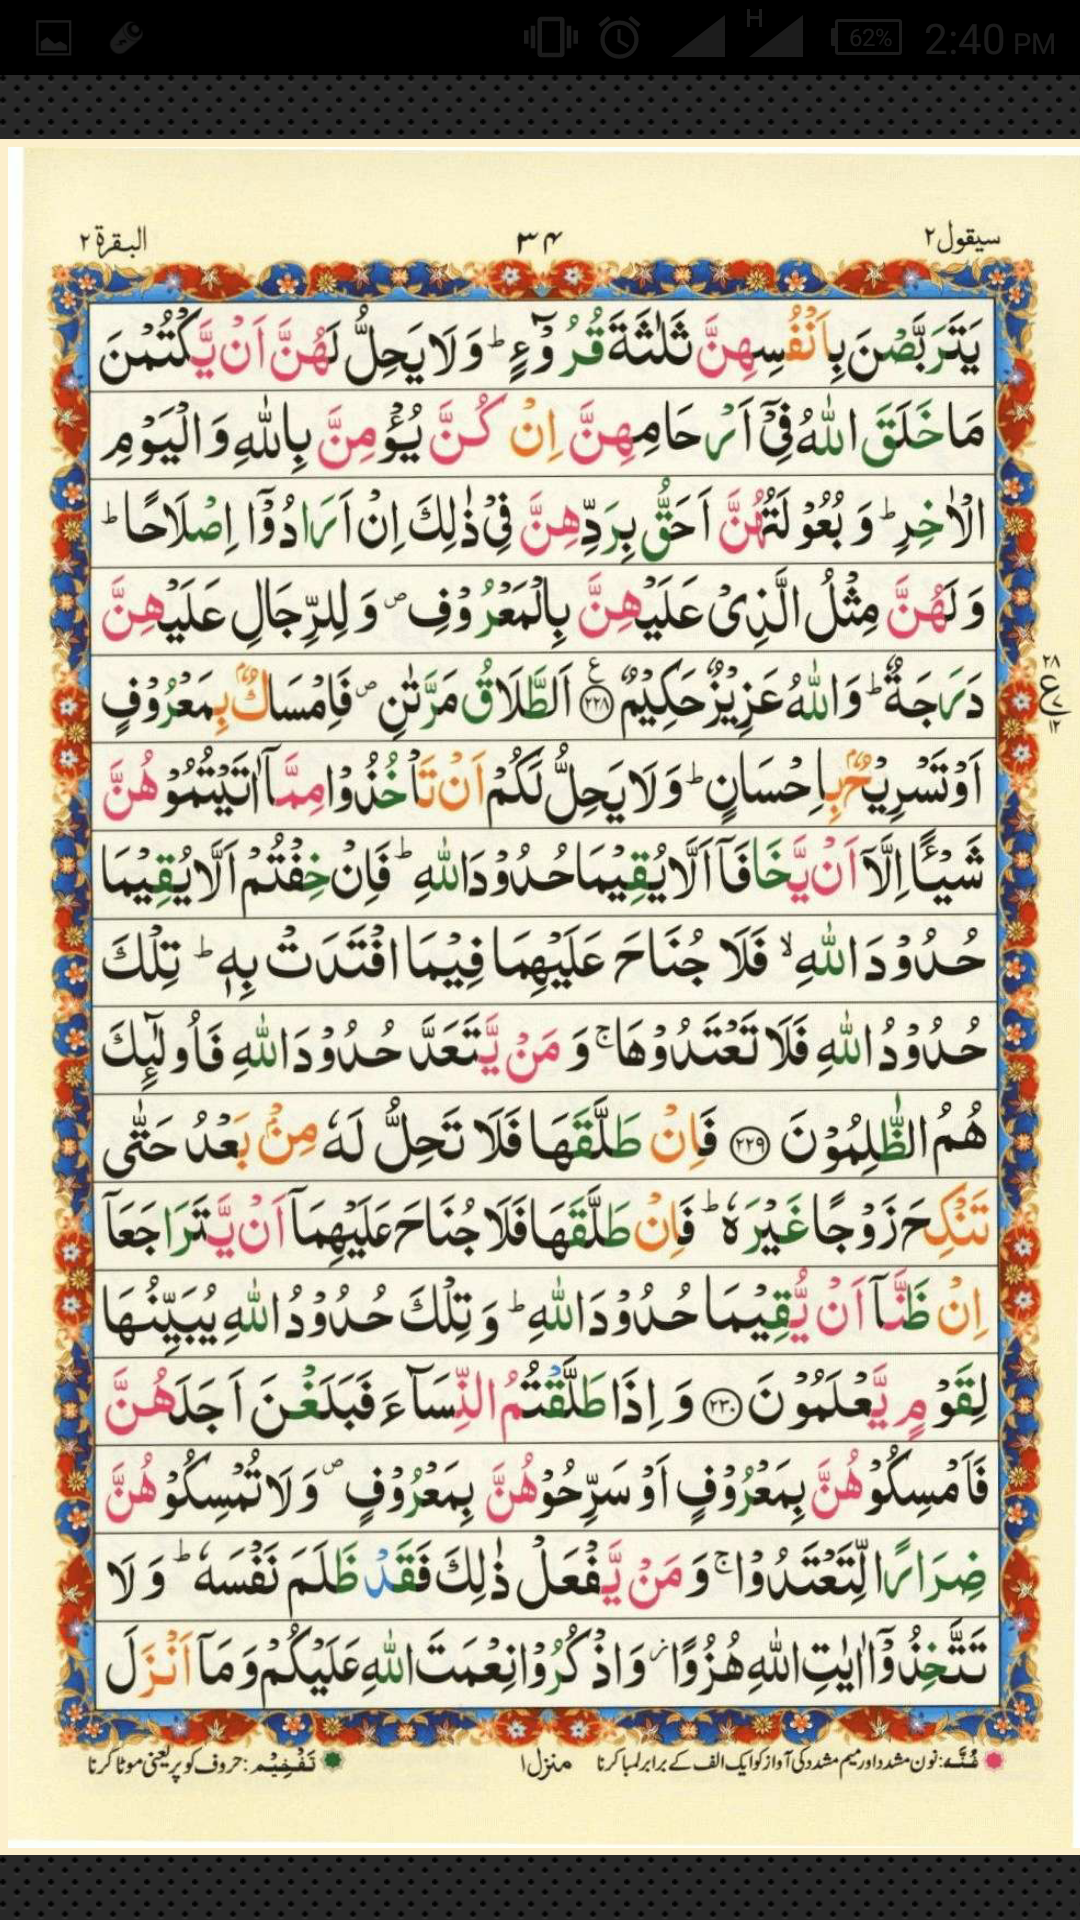 62%
H
2:40 PM
سیقول ۲
۳۴
البقرة ۲
يَتَرَبَّصْنَ بِاَنْفُسِهِنَّ ثَلٰثَةَ قُرُوْٓءٍ ؕ وَلَا يَحِلُّ لَهُنَّ اَنْ يَّكْتُمْنَ
مَا خَلَقَ اللّٰهُ فِىْٓ اَرْحَامِهِنَّ اِنْ كُنَّ يُؤْمِنَّ بِاللّٰهِ وَالْيَوْمِ
الْاٰخِرِ ؕ وَبُعُوْلَتُهُنَّ اَحَقُّ بِرَدِّهِنَّ فِىْ ذٰلِكَ اِنْ اَرَادُوْٓا اِصْلَاحًا ؕ
وَلَهُنَّ مِثْلُ الَّذِىْ عَلَيْهِنَّ بِالْمَعْرُوْفِ ۪ وَلِلرِّجَالِ عَلَيْهِنَّ
دَرَجَةٌ ؕ وَاللّٰهُ عَزِيْزٌ حَكِيْمٌ ﴿۲۲۸﴾ ع اَلطَّلَاقُ مَرَّتٰنِ ۪ فَاِمْسَاكٌۢ بِمَعْرُوْفٍ
۲۸
ع
۷
۱۲
اَوْ تَسْرِيْحٌۢ بِاِحْسَانٍ ؕ وَلَا يَحِلُّ لَكُمْ اَنْ تَاْخُذُوْا مِمَّآ اٰتَيْتُمُوْهُنَّ
شَيْـًٔا اِلَّآ اَنْ يَّخَافَآ اَلَّا يُقِيْمَا حُدُوْدَ اللّٰهِ ؕ فَاِنْ خِفْتُمْ اَلَّا يُقِيْمَا
حُدُوْدَ اللّٰهِ ۙ فَلَا جُنَاحَ عَلَيْهِمَا فِيْمَا افْتَدَتْ بِهٖ ؕ تِلْكَ
حُدُوْدُ اللّٰهِ فَلَا تَعْتَدُوْهَا ۚ وَمَنْ يَّتَعَدَّ حُدُوْدَ اللّٰهِ فَاُولٰٓئِكَ
هُمُ الظّٰلِمُوْنَ ﴿۲۲۹﴾ فَاِنْ طَلَّقَهَا فَلَا تَحِلُّ لَهٗ مِنْۢ بَعْدُ حَتّٰى
تَنْكِحَ زَوْجًا غَيْرَهٗ ؕ فَاِنْ طَلَّقَهَا فَلَا جُنَاحَ عَلَيْهِمَآ اَنْ يَّتَرَاجَعَآ
اِنْ ظَنَّآ اَنْ يُّقِيْمَا حُدُوْدَ اللّٰهِ ؕ وَتِلْكَ حُدُوْدُ اللّٰهِ يُبَيِّنُهَا
لِقَوْمٍ يَّعْلَمُوْنَ ﴿۲۳۰﴾ وَاِذَا طَلَّقْتُمُ النِّسَآءَ فَبَلَغْنَ اَجَلَهُنَّ
فَاَمْسِكُوْهُنَّ بِمَعْرُوْفٍ اَوْ سَرِّحُوْهُنَّ بِمَعْرُوْفٍ ۪ وَلَا تُمْسِكُوْهُنَّ
ضِرَارًا لِّتَعْتَدُوْا ۚ وَمَنْ يَّفْعَلْ ذٰلِكَ فَقَدْ ظَلَمَ نَفْسَهٗ ؕ وَلَا
تَتَّخِذُوْٓا اٰيٰتِ اللّٰهِ هُزُوًا ز وَاذْكُرُوْا نِعْمَتَ اللّٰهِ عَلَيْكُمْ وَمَآ اَنْزَلَ
غُنَّه: نون مشدد اور میم مشدد کی آواز کو ایک الف کے برابر لمبا کرنا
منزل ۱
تَفْخِيْم: حروف کو پُر یعنی موٹا کرنا